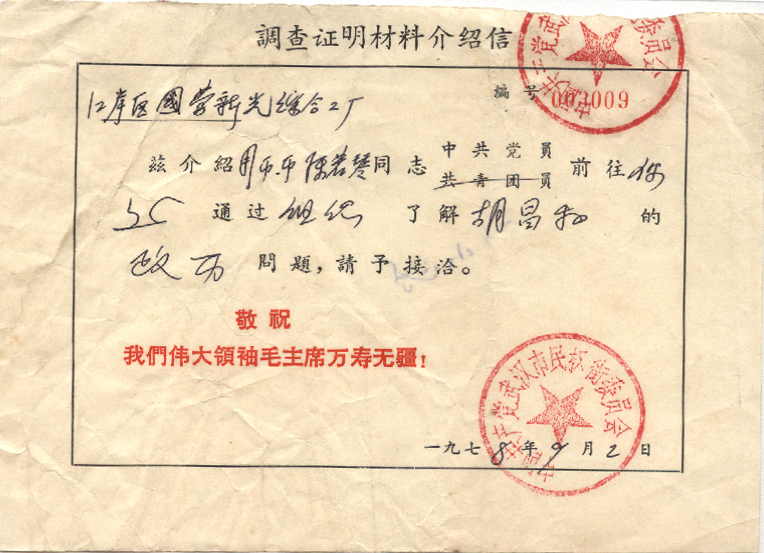 調查证明材料介绍信
編号 003009
江岸区國营新光综合工厂
茲介紹 同志 中共党员 前往
共青团员
通过组织了解胡昌 的
政历問題，請予接洽。
敬祝
我們伟大領袖毛主席万寿无疆！
一九七8年9月2日
中国共产党武汉市民权街委员会